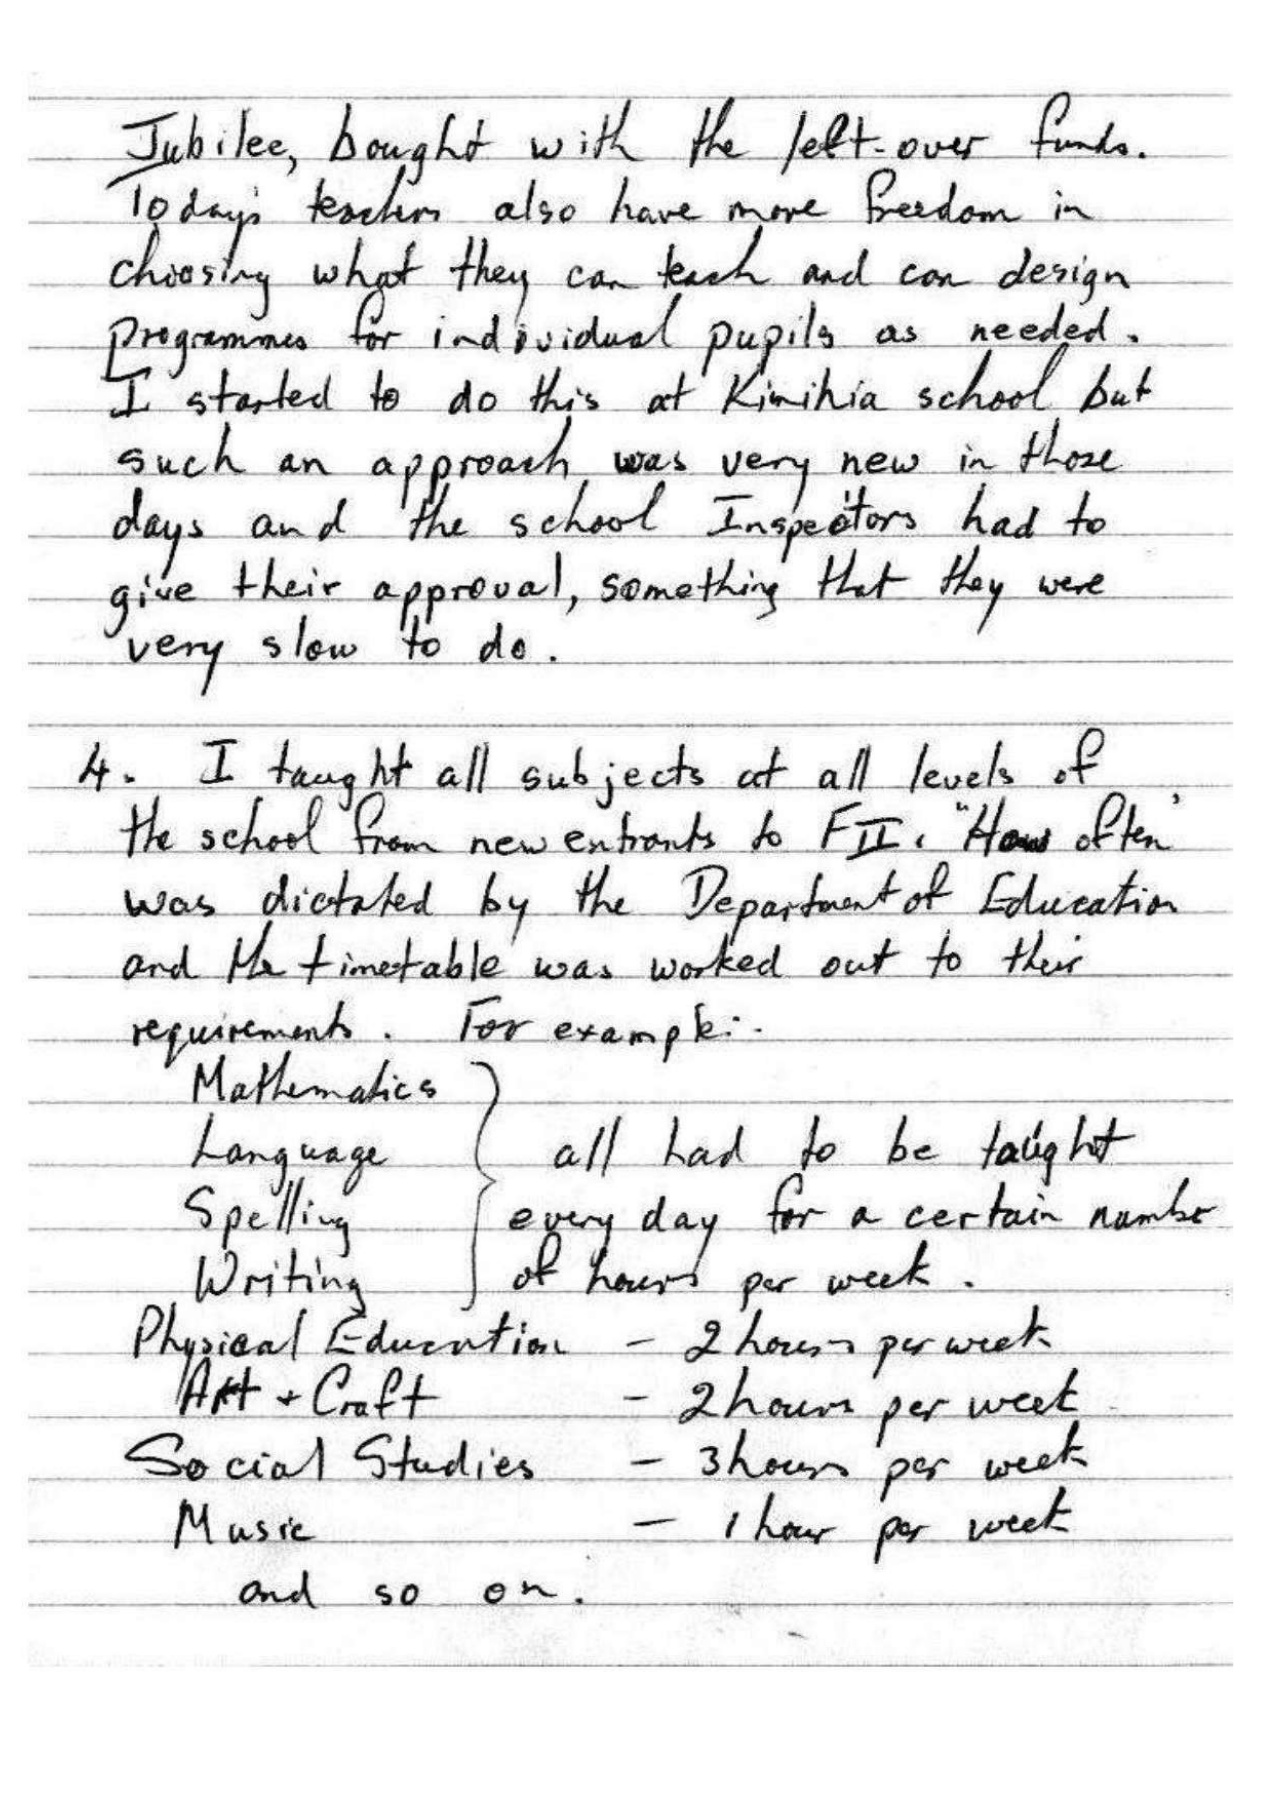 Jubilee, bought with the left-over funds.
Today's teachers also have more freedom in
choosing what they can teach and can design
programmes for individual pupils as needed.
I started to do this at Kinihia school but
such an approach was very new in those
days and the school Inspectors had to
give their approval, something that they were
very slow to do.
4. I taught all subjects at all levels of
the school from new entrants to FII. "How often"
was dictated by the Department of Education
and the timetable was worked out to their
requirements. For example:-
Mathematics
Language all had to be taught
Spelling every day for a certain number
Writing of hours per week.
Physical Education - 2 hours per week
Art + Craft - 2 hours per week
Social Studies - 3 hours per week
Music - 1 hour per week
and so on.